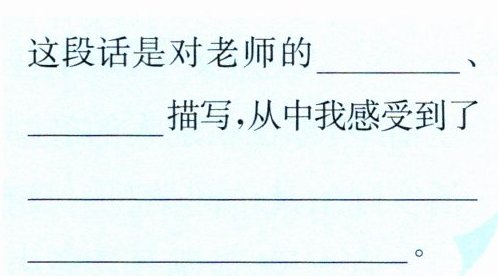 这段话是对老师的________、
________描写,从中我感受到了
________________________
____________________。